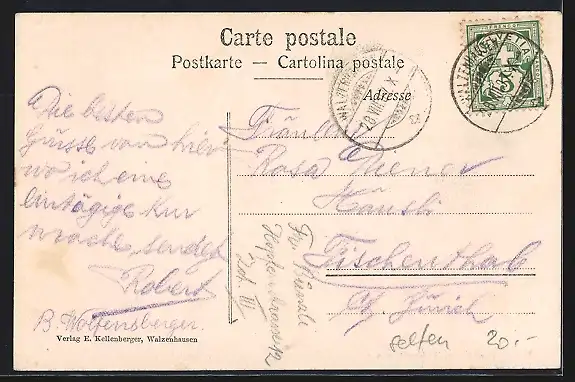 Carte postale
Postkarte — Cartolina postale
Adresse
HELVETIA
5
Die besten
Grüsse von hier
wo ich eine
eintägige Kur
mache, sendet
Robert
B. Wolfensberger.
Verlag E. Kellenberger, Walzenhausen
Fräulein
Rosa Diener
Häusli
Fischenthal
Ct. Zürich
selten 20.-